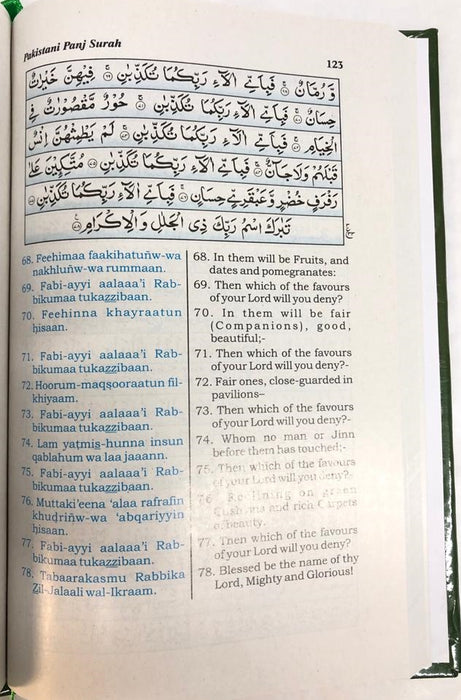 Pakistani Panj Surah
123
وَّ رُمَّانٌ ۚ﴿۶۸﴾ فَبِاَیِّ اٰلَآءِ رَبِّكُمَا تُكَذِّبٰنِ ۚ﴿۶۹﴾ فِیْهِنَّ خَیْرٰتٌ
حِسَانٌ ۚ﴿۷۰﴾ فَبِاَیِّ اٰلَآءِ رَبِّكُمَا تُكَذِّبٰنِ ۚ﴿۷۱﴾ حُوْرٌ مَّقْصُوْرٰتٌ فِی
الْخِیَامِ ۚ﴿۷۲﴾ فَبِاَیِّ اٰلَآءِ رَبِّكُمَا تُكَذِّبٰنِ ۚ﴿۷۳﴾ لَمْ یَطْمِثْهُنَّ اِنْسٌ
قَبْلَهُمْ وَلَا جَآنٌّ ۚ﴿۷۴﴾ فَبِاَیِّ اٰلَآءِ رَبِّكُمَا تُكَذِّبٰنِ ۚ﴿۷۵﴾ مُتَّكِـِٕیْنَ عَلٰی
رَفْرَفٍ خُضْرٍ وَّ عَبْقَرِیٍّ حِسَانٍ ۚ﴿۷۶﴾ فَبِاَیِّ اٰلَآءِ رَبِّكُمَا تُكَذِّبٰنِ ﴿۷۷﴾
تَبٰرَكَ اسْمُ رَبِّكَ ذِی الْجَلٰلِ وَ الْاِكْرَامِ ﴿۷۸﴾
68. Feehimaa faakihatuñw-wa
nakhluñw-wa rummaan.
69. Fabi-ayyi aalaaa'i Rab-
bikumaa tukazzibaan.
70. Feehinna khayraatun
ḥisaan.
71. Fabi-ayyi aalaaa'i Rab-
bikumaa tukazzibaan.
72. Hoorum-maqsooraatun fil-
khiyaam.
73. Fabi-ayyi aalaaa'i Rab-
bikumaa tukazzibaan.
74. Lam yaṭmis̱-hunna insun
qablahum wa laa jaaann.
75. Fabi-ayyi aalaaa'i Rab-
bikumaa tukazzibaan.
76. Muttaki'eena 'alaa rafrafin
khuḍriñw-wa 'abqariyyin
ḥisaan.
77. Fabi-ayyi aalaaa'i Rab-
bikumaa tukazzibaan.
78. Tabaarakasmu Rabbika
Ẓil-Jalaali wal-Ikraam.
68. In them will be Fruits, and
dates and pomegranates:
69. Then which of the favours
of your Lord will you deny?
70. In them will be fair
(Companions), good,
beautiful;-
71. Then which of the favours
of your Lord will you deny?-
72. Fair ones, close-guarded in
pavilions–
73. Then which of the favours
of your Lord will you deny?-
74. Whom no man or Jinn
before them has touched;-
75. Then which of the favours
of your Lord will you deny?-
76. Reclining on green
Cushions and rich Carpets
of beauty.
77. Then which of the favours
of your Lord will you deny?
78. Blessed be the name of thy
Lord, Mighty and Glorious!